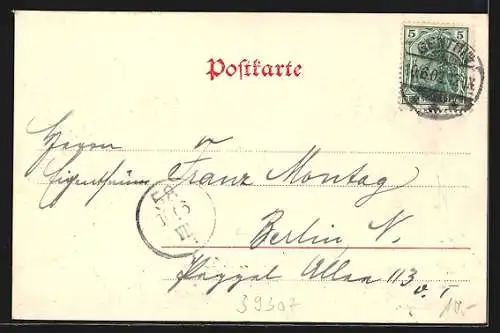 5 5
Postkarte
Herrn
Eigenthümer Franz Montag
Berlin N.
Pappel Allee 113 v. I
39307
10.-